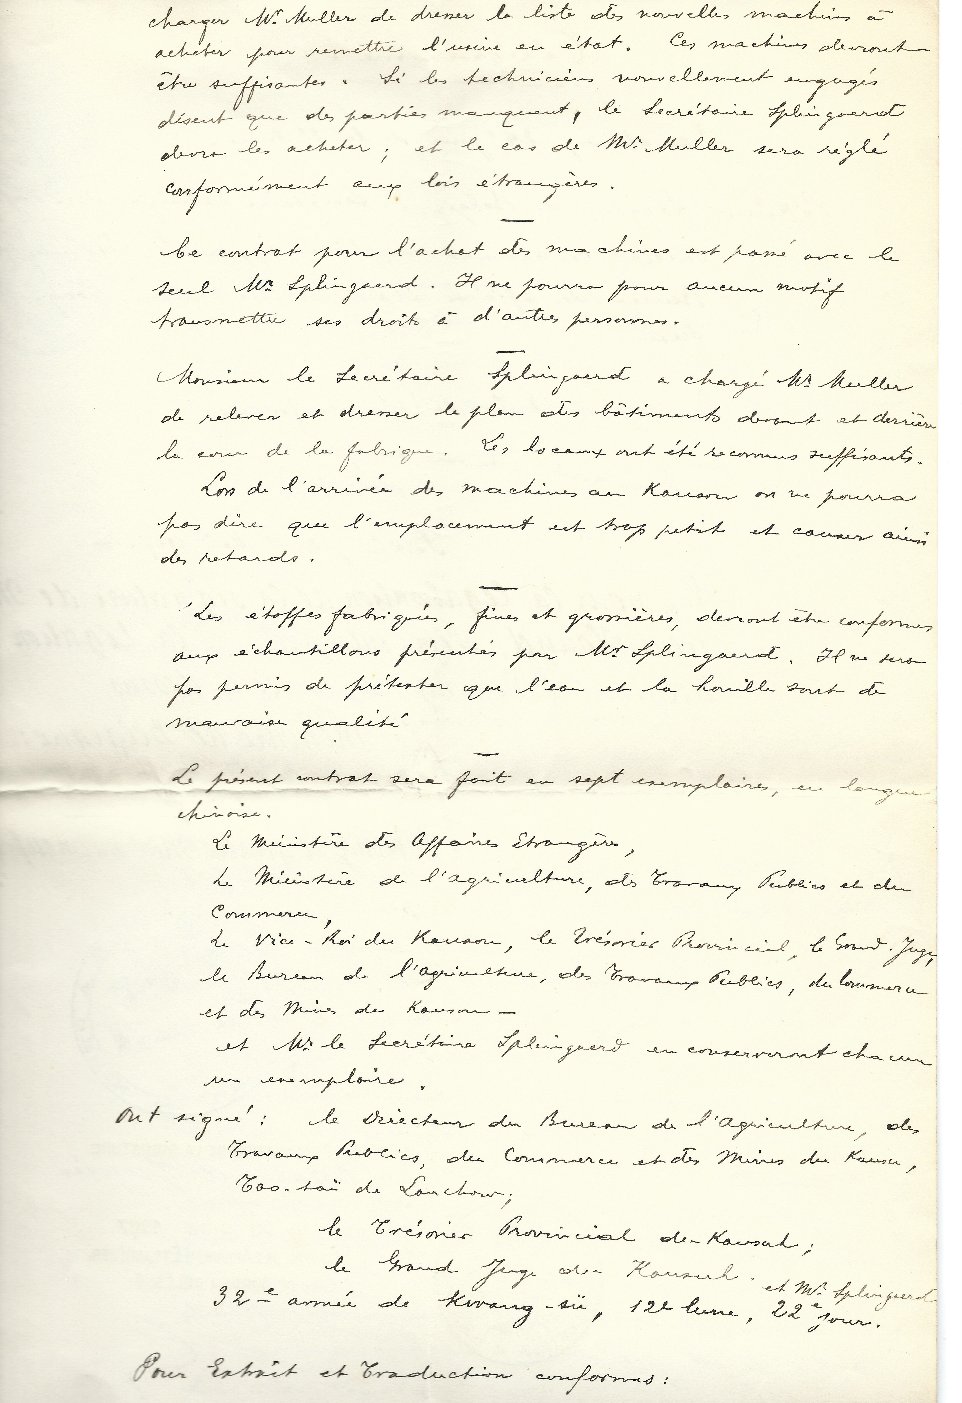 charger Mr Muller de dresser la liste des nouvelles machines à
acheter pour remettre l'usine en état. Ces machines devront
être suffisantes. Si les techniciens nouvellement engagés
disent que des parties manquent, le Secrétaire Splingaerd
devra les acheter ; et le cas de Mr Muller sera réglé
conformément aux lois étrangères.
Ce contrat pour l'achat des machines est passé avec le
seul Mr Splingaerd. Il ne pourra pour aucun motif
transmettre ses droits à d'autres personnes.
Monsieur le Secrétaire Splingaerd a chargé Mr Muller
de relever et dresser le plan des bâtiments devant et derrière
la cour de la fabrique. Les locaux ont été reconnus suffisants.
Lors de l'arrivée des machines au Kansou on ne pourra
pas dire que l'emplacement est trop petit et causer ainsi
des retards.
Les étoffes fabriquées, fines et grossières, devront être conformes
aux échantillons présentés par Mr Splingaerd. Il ne sera
pas permis de prétexter que l'eau et la houille sont de
mauvaise qualité
Le présent contrat sera fait en sept exemplaires, en langue
chinoise.
Le Ministère des Affaires Etrangères,
Le Ministère de l'agriculture, des Travaux Publics et du
Commerce,
Le Vice-Roi du Kansou, le Trésorier Provincial, le Grand-Juge,
le Bureau de l'agriculture, des Travaux Publics, du Commerce
et des Mines du Kansou —
et Mr le Secrétaire Splingaerd en conserveront chacun
un exemplaire.
Ont signé : le Directeur du Bureau de l'Agriculture, des
Travaux Publics, du Commerce et des Mines du Kansu,
Tao-taï de Lanchow;
le Trésorier Provincial du Kansuh;
le Grand Juge du Kansuh. et Mr Splingaerd
32e année de Kwang-sü, 12e lune, 22e jour.
Pour Extrait et Traduction conformes: